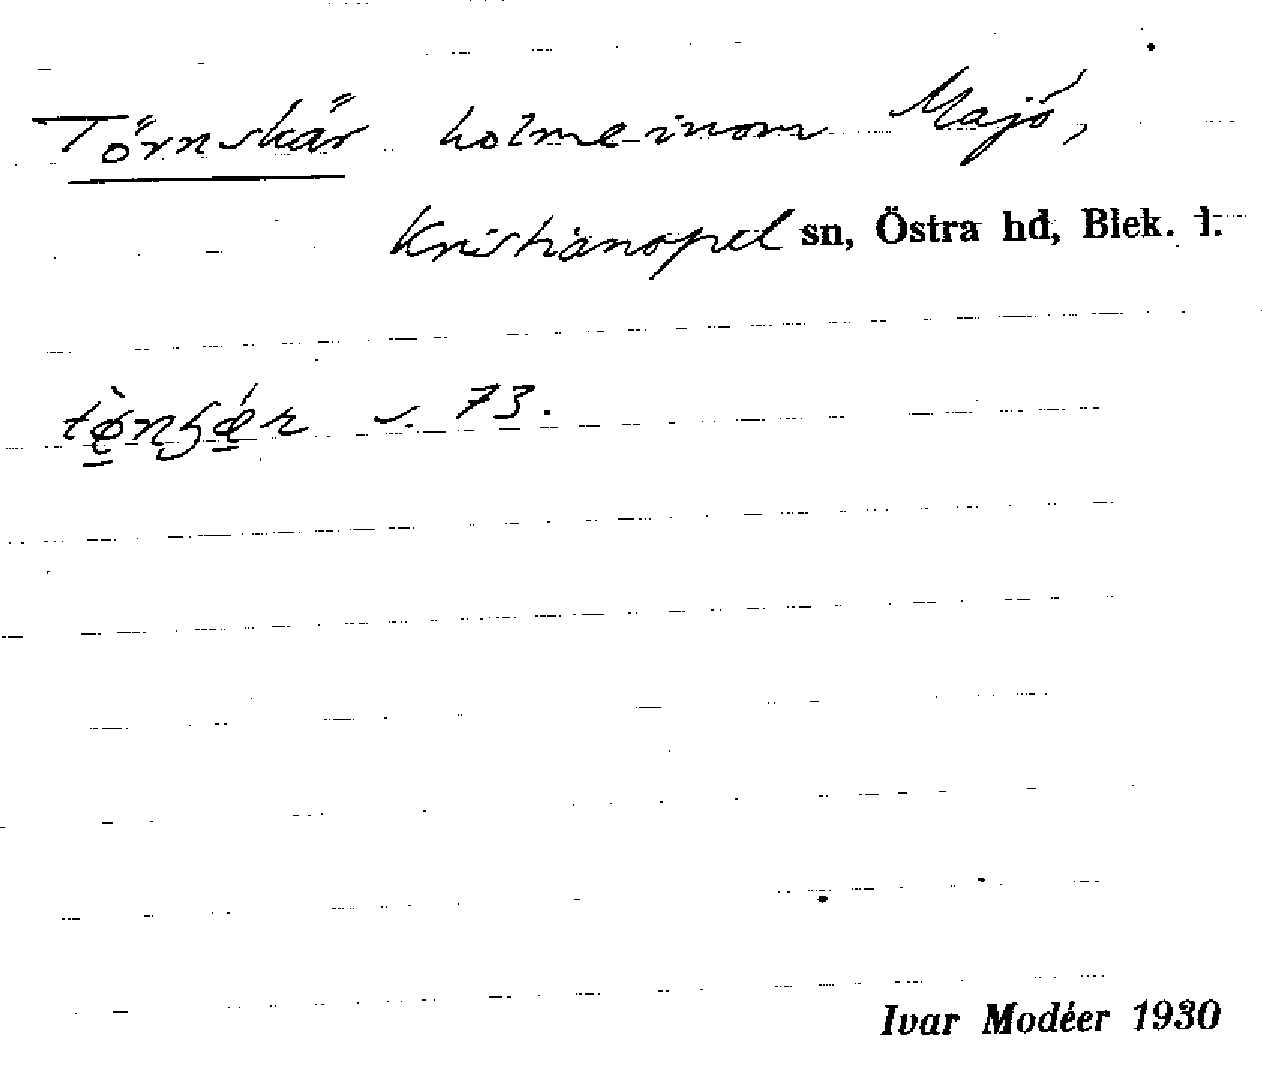 Törnskär holme inom Majö,
Kristianopel sn, Östra hd, Blek. l.
v. 73.
Ivar Modéer 1930